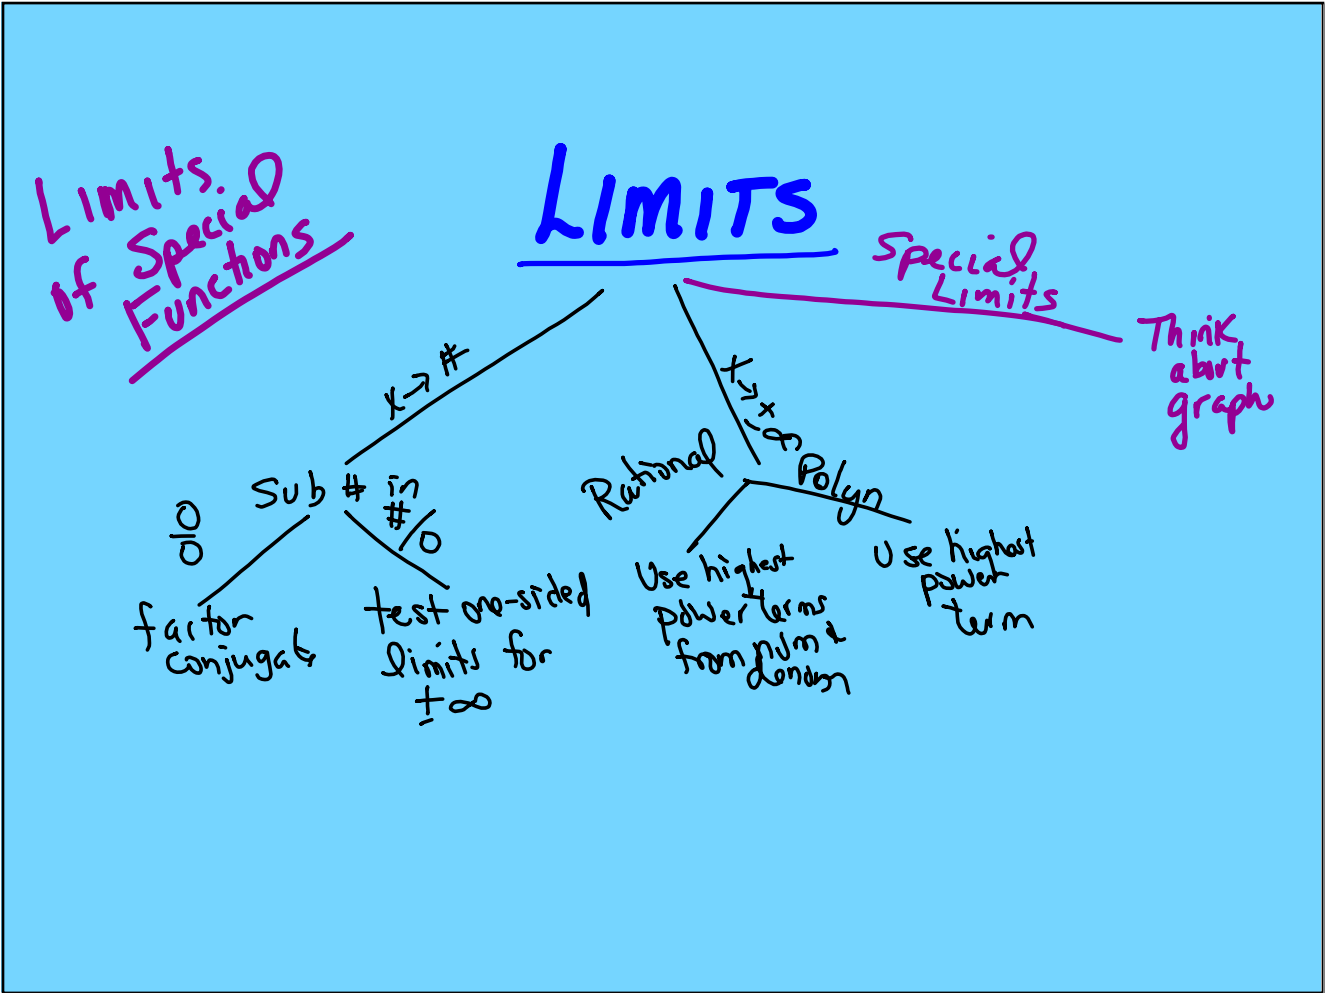 Limits
of Special
Functions
LIMITS
Special
Limits
Think
about
graphs
x → #
x → ±∞
Sub # in
0/0
#/0
factor
conjugate
test one-sided
limits for
± ∞
Rational
Polyn
Use highest
power terms
from num &
denom
Use highest
power
term